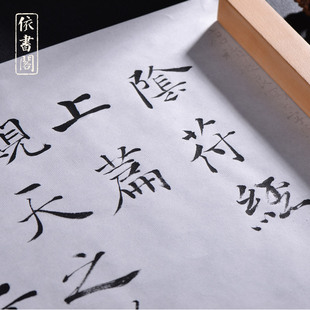 依書閣
陰符經
上篇
觀天之